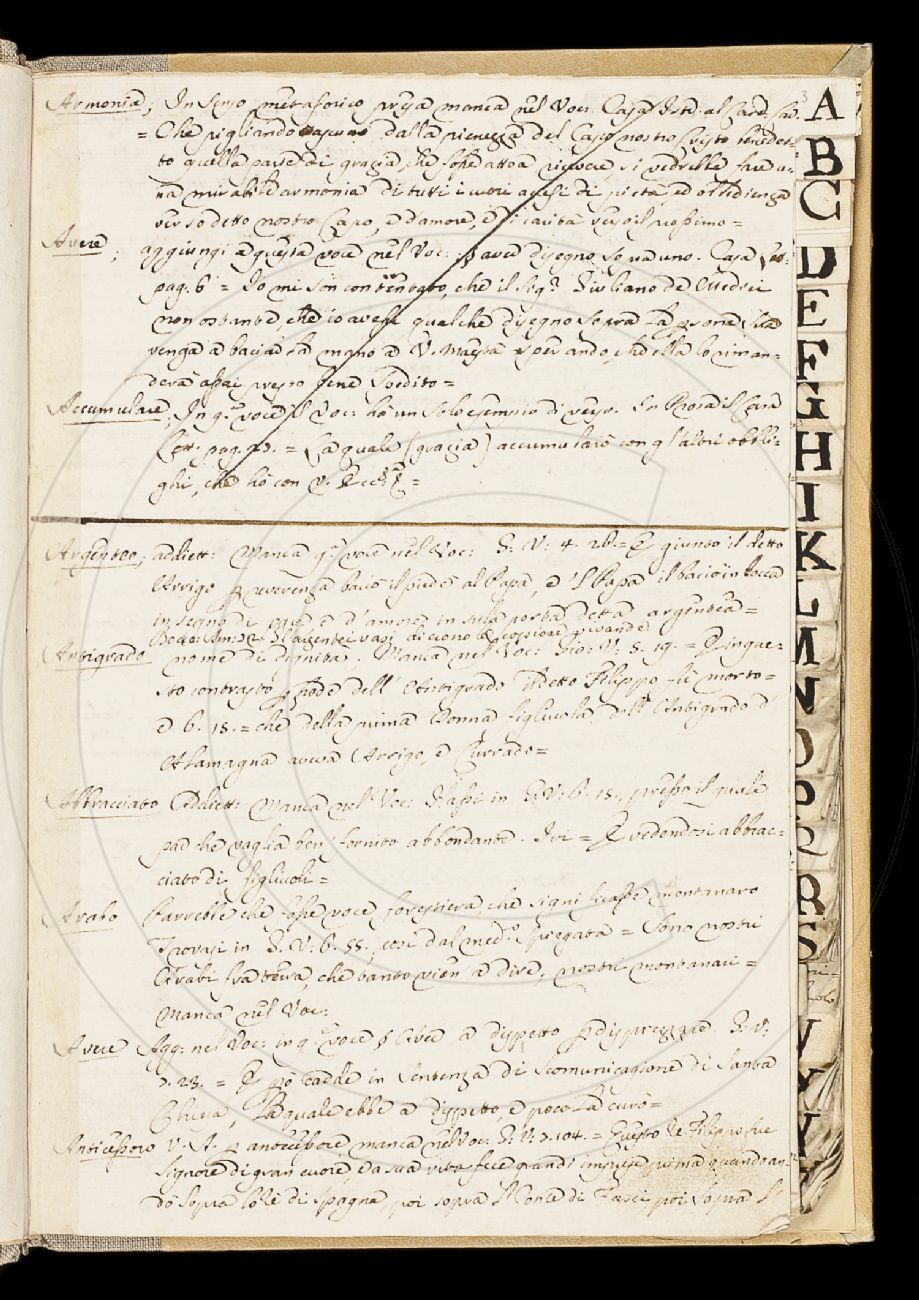 3
Armonia; In senso metaforico presa manca nel Voc: Casa Istr. al Card. Car.
= Che pigliando ciascuno dalla pienezza del Capo nostro Cristo benedet-
to quella parte di grazia, che fosse atto a ricevere, si vedrebbe fare u-
na mirabile armonia di tutti i cuori accesi di pietà, ed obbedienza
verso detto nostro Capo, e d'amore, e di carità verso il prossimo =
Avere; aggiungi a questa voce nel Voc: § aver disegno sopra uno. Casa
pag. 6 = Io mi son contentato, che il Sigr. Giuliano de Medici
non ostante, che io avessi qualche disegno sopra la persona sua
venga a baciar la mano a V. Maestà sperando, che ella lo riman-
derà assai presto bene spedito =
Accumulare; In qa. voce il Voc: hà un solo esempio di verso. In Prosa il Casa
Lett: pag. = La quale (grazia) accumularò con gl'altri obbli-
ghi, che hò con V. Ecc.
Argenteo; addiett: Manca qa. voce nel Voc: G: V: 4. 28. = E giunto il detto
Arrigo reverenza baciò il piede al Papa, e 'l Papa il baciò in bocca
in segno di pace e d'amore in sulla porta detta argentea =
argentei vasi
Antigrado nome di dignità. Manca nel Voc: Gio: V: 5. 19. = E in que-
sto contrasto prode dell' Antigrado il detto Filippo fù morto =
e 6. 15. = che della prima Donna figliuola dell'Antigrado d'
Alamagna aveva Arrigo, e Currado =
Abbracciato Addiett: Manca nel Voc: Hassi in G: V: 6. 15., presso il quale
par che vaglia ben fornito abbondante. Ivi = E vedendosi abbrac-
ciato di figliuoli =
Arabo Parrebbe che fosse voce forestiera, che significasse montanaro
Trovasi in G: V: 6. 55., così dal med.o spiegata = Sono nostri
Arabi fra terra, che tanto vien a dire, nostri montanari =
manca nel Voc:
Avere Agg: nel Voc: in qa. voce § Avere a dispetto disprezzare. G: V:
7. 23. = E però cadde in sentenza di scomunicazione di Santa
Chiesa, la quale ebbe a dispetto, e poco la curò =
Antecessoro V. A. antecessore, manca nel Voc: G: V: 7. 104. = Questo Re Filippo fue
signore di gran cuore, e da sua vita fece grandi imprese prima quando an-
dò sopra lo Re di Spagna, poi sopra 'l Conte di poi sopra 'l
A
B
C
D
E
F
G
H
I
K
L
M
N
O
P
Q
R
S
V
X